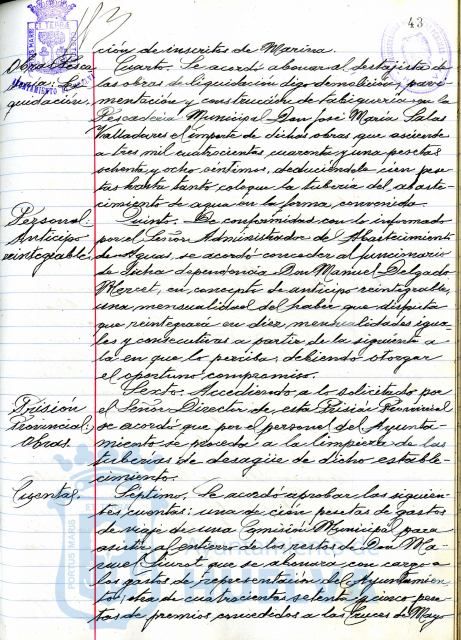 43
ción de inscritos de Marina.
Obras Pesca-
quidación.
Cuarto. Se acordó abonar al destajista de
las obras de liquidación digo demolición, pavi-
mentación y construcción de tabiquería en la
Pescadería Municipal Don José María Salas
Valladares el importe de dichas obras que asciende
a tres mil cuatrocientas cuarenta y una pesetas
ochenta y ocho céntimos, deduciéndole cien pese-
tas hasta tanto coloque la tubería del abaste-
cimiento de agua en la forma convenida.
Personal:
Anticipo
reintegrable.
Quinto. De conformidad con lo informado
por el Señor Administrador del Abastecimiento
de Aguas, se acordó conceder al funcionario
de dicha dependencia Don Manuel Delgado
Mercet, en concepto de anticipo reintegrable,
una mensualidad del haber que disfruta
que reintegrará en diez mensualidades igua-
les y consecutivas a partir de la siguiente a
la en que lo perciba, debiendo otorgar
el oportuno compromiso.
Prisión
Provincial:
Obras.
Sexto. Accediendo a lo solicitado por
el Señor Director de esta Prisión Provincial
se acordó que por el personal del Ayunta-
miento se proceda a la limpieza de las
tuberías de desagüe de dicho estable-
cimiento.
Cuentas.
Séptimo. Se acordó aprobar las siguien-
tes cuentas: una de cien pesetas de gastos
de viaje de una Comisión Municipal para
asistir al entierro de los restos de Don Ma-
nuel Siurot que se abonará con cargo a
los gastos de representación del Ayuntamien-
to; otra de cuatrocientas setenta y cinco pese-
tas de premios concedidos a las Cruces de Mayo
Ayuntamiento de
PORTUS MARIS